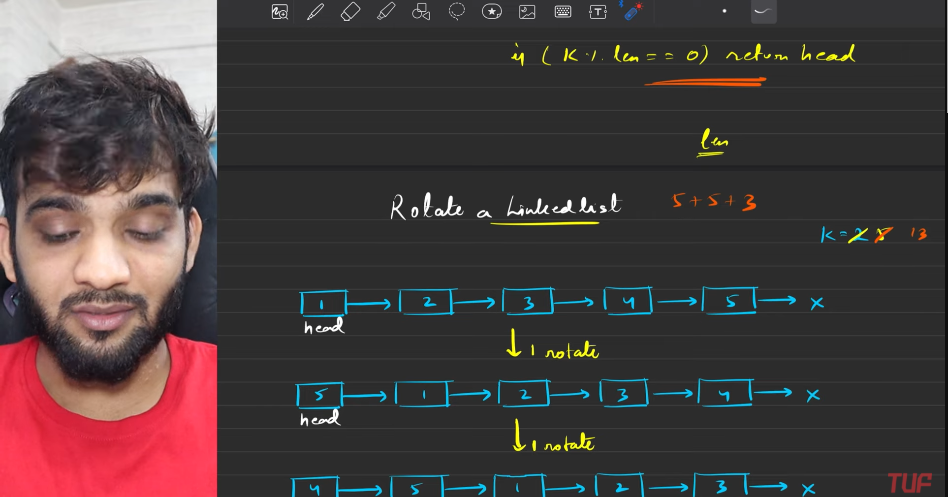 if (K % len == 0) return head
len
Rotate a Linkedlist 5+5+3
K = 2 5 13
1 2 3 4 5 x
head
1 rotate
5 1 2 3 4 x
head
1 rotate
4 5 1 2 3 x
TUF